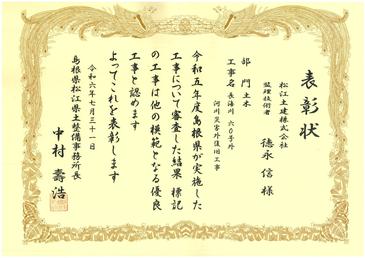 表彰状
松江土建株式会社
監理技術者
徳永 信 様
部門 土木
工事名 長海川 六〇号外
河川災害外復旧工事
令和五年度島根県が実施した
工事について審査した結果 標記
の工事は他の模範となる優良
工事と認めます
よってこれを表彰します
令和六年七月三十一日
島根県松江県土整備事務所長
中村 壽浩